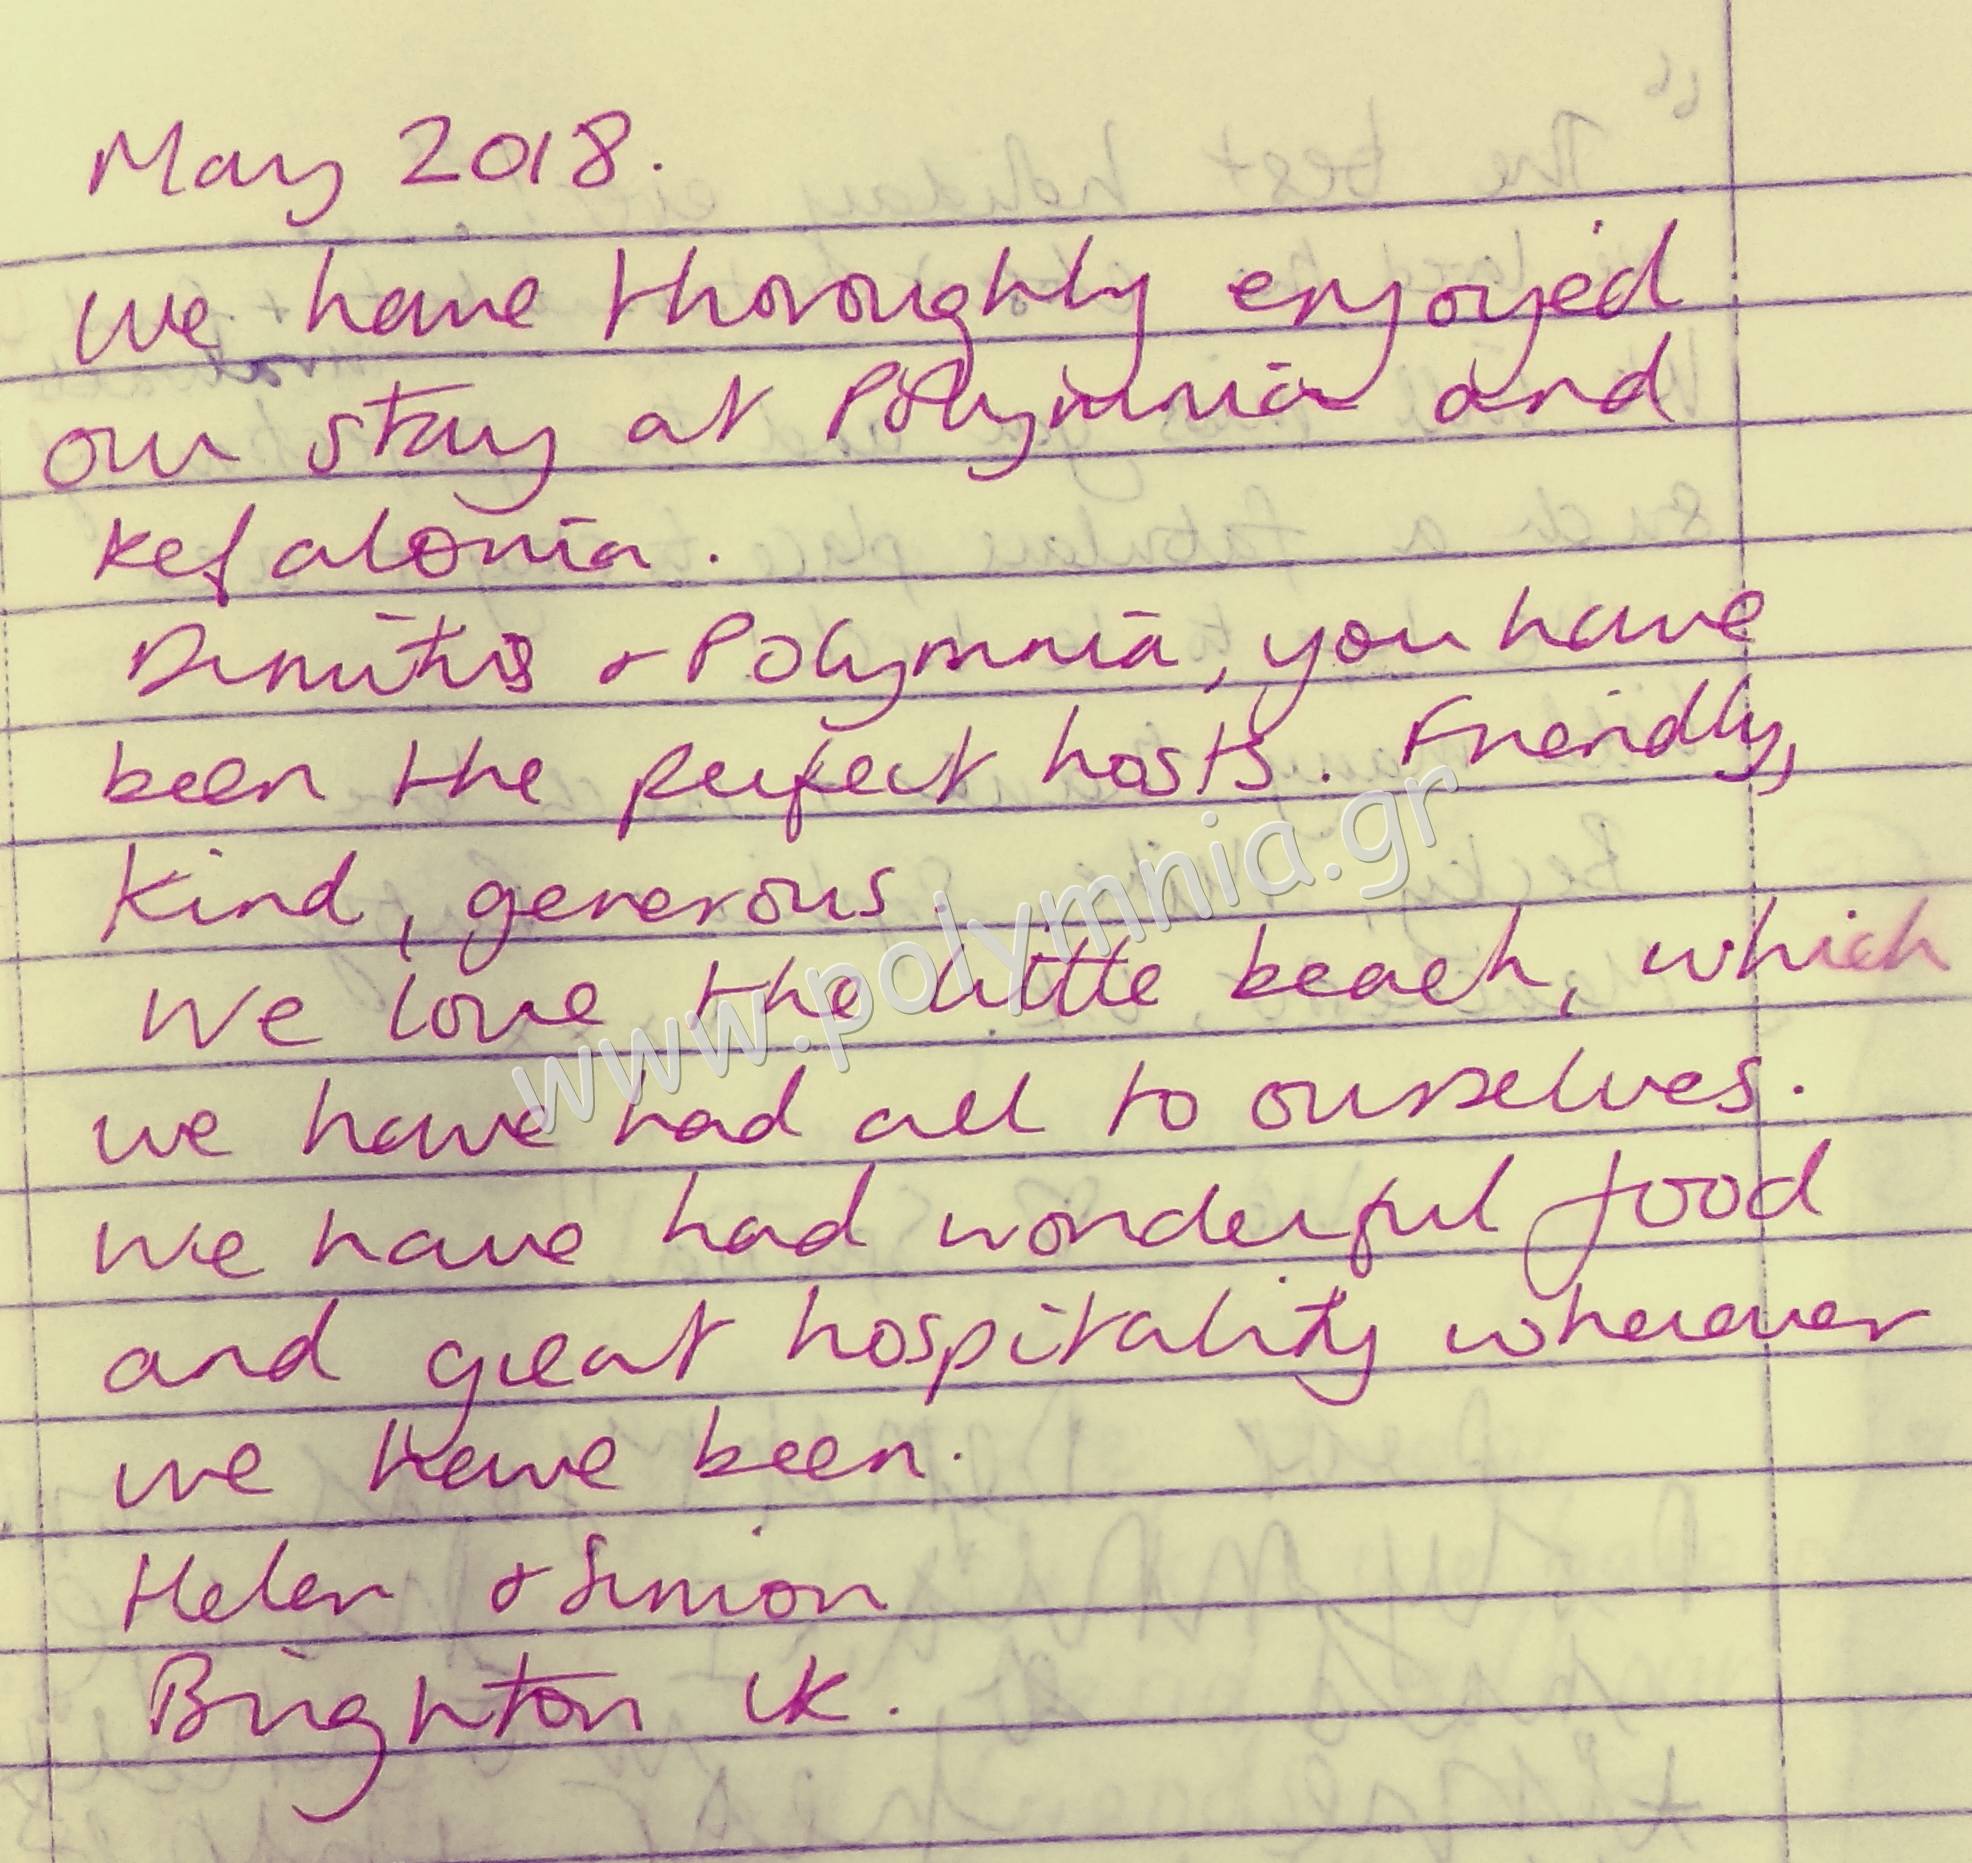 May 2018.
We have thoroughly enjoyed
our stay at Polymnia and
Kefalonia.
Dimitris + Polymnia, you have
been the perfect hosts. Friendly,
kind, generous.
We love the little beach, which
we have had all to ourselves.
We have had wonderful food
and great hospitality wherever
we have been.
Helen + Simon
Brighton UK.
www.polymnia.gr